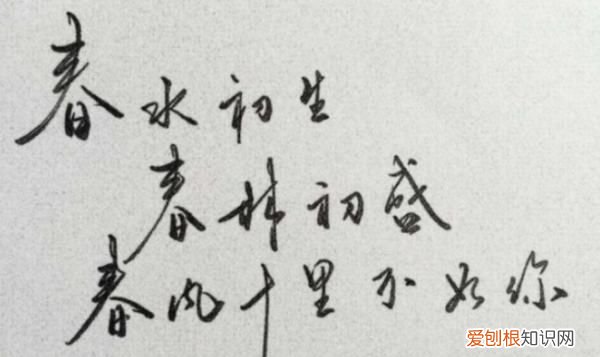 春水初生
春林初盛
春风十里不如你
爱刨根知识网